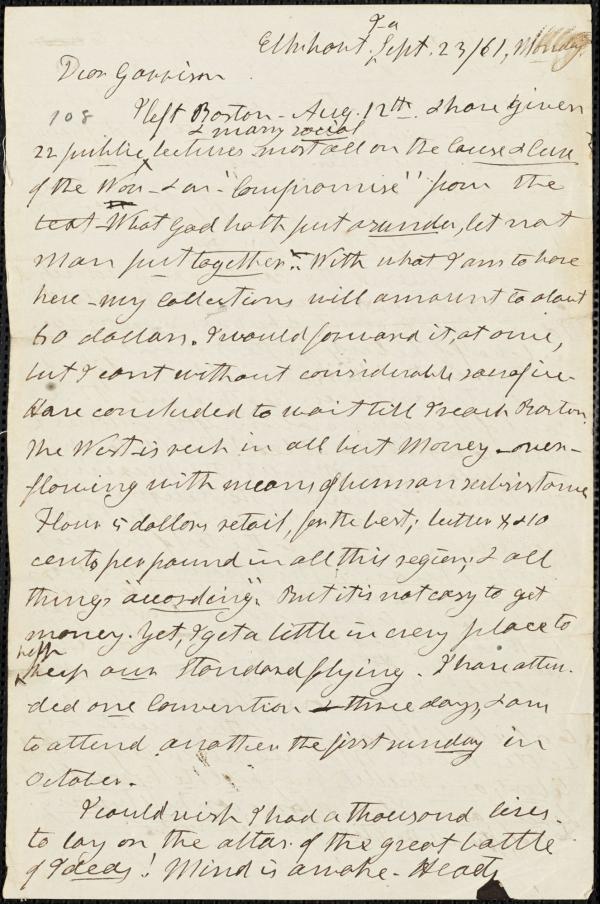 Elkhart, Ia
Sept. 23/61, Monday.
Dear Garrison
108
I left Boston - Aug. 12th. & have given
& many social
22 public lectures - most all on the Cause & Cure
of the War - & on "Compromise" from the
text - What God hath put asunder, let not
man put together". With what I am to have
here - my collections will amount to about
60 dollars. I would forward it, at once,
but I cant without considerable sacrifice -
Have concluded to wait till I reach Boston.
The West is rich in all but Money - over-
flowing with means of human subsistence
Flour 5 dollars retail, for the best; butter 8 & 10
cents per pound in all this region; & all
things "according". But it is not easy to get
money. Yet, I get a little in every place to
help
keep our Standard flying. I have atten-
ded one Convention - three days, & am
to attend another the first sunday in
October.
I could wish I had a thousand lives -
to lay on the altar of the great battle
of Ideas! Mind is awake - Hearts